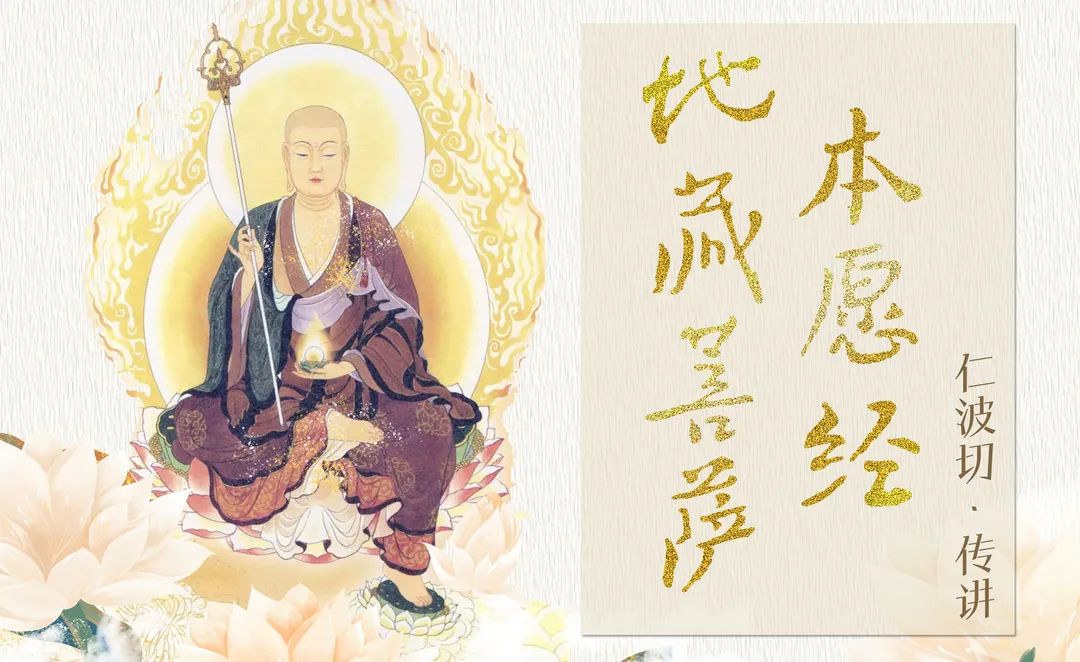 地藏菩萨
本愿经
仁波切·传讲